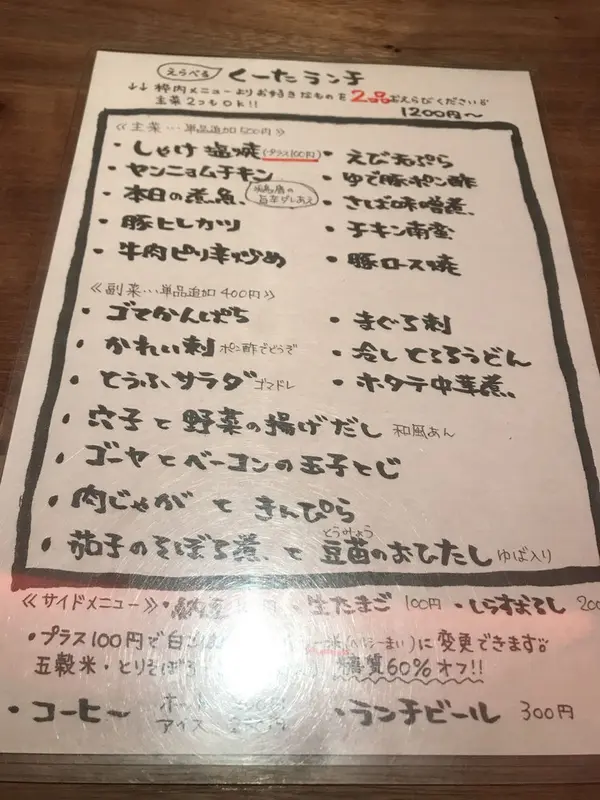 えらべる くーたランチ
↓↓ 枠内メニューよりお好きなものを2品おえらびください♪
主菜2つもOK!!
1200円〜
≪主菜…単品追加500円≫
・しゃけ塩焼(プラス100円)
・えび天ぷら
・ヤンニョムチキン
・ゆで豚ポン酢
・本日の煮魚
・さば味噌煮
・豚ヒレカツ
・チキン南蛮
・牛肉ピリ辛炒め
・豚ロース焼
≪副菜…単品追加400円≫
・ゴマかんぱち
・まぐろ刺
・かれい刺 ポン酢でどうぞ
・冷しとろろうどん
・とうふサラダ ゴマドレ
・ホタテ中華煮
・穴子と野菜の揚げだし 和風あん
・ゴーヤとベーコンの玉子とじ
・肉じゃがときんぴら
・茄子のそぼろ煮と豆苗のおひたし ゆば入り
とうみょう
≪サイドメニュー≫ ・納豆 円 ・生たまご 100円 ・しらすおろし 200
・プラス100円で白 米 に変更できます。
五穀米・とりそぼろ 糖質60%オフ!!
・コーヒー ホ
アイス 円
・ランチビール 300円